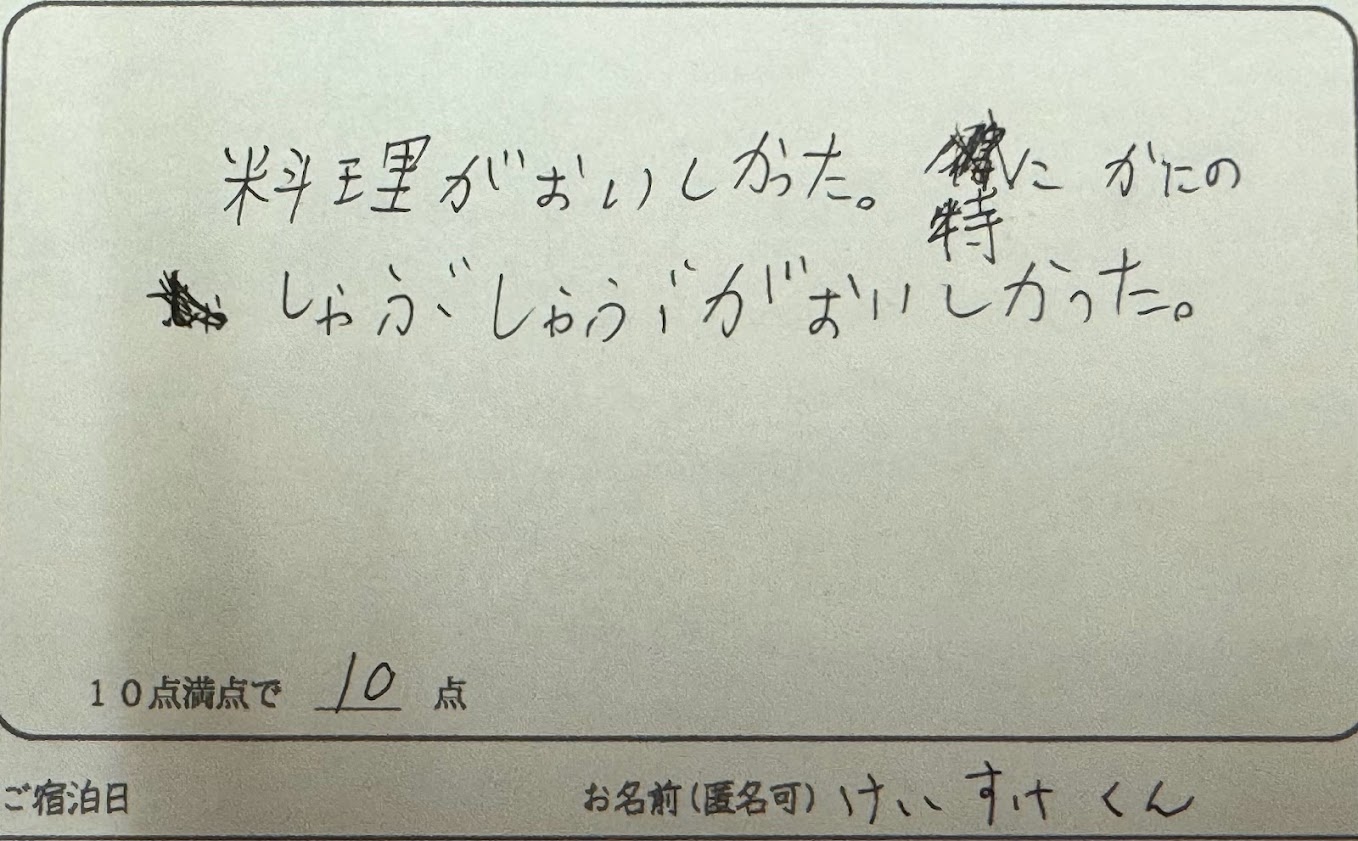 料理がおいしかった。特に かにの
しゃぶしゃぶがおいしかった。
10点満点で 10 点
ご宿泊日 お名前(匿名可) けいすけくん